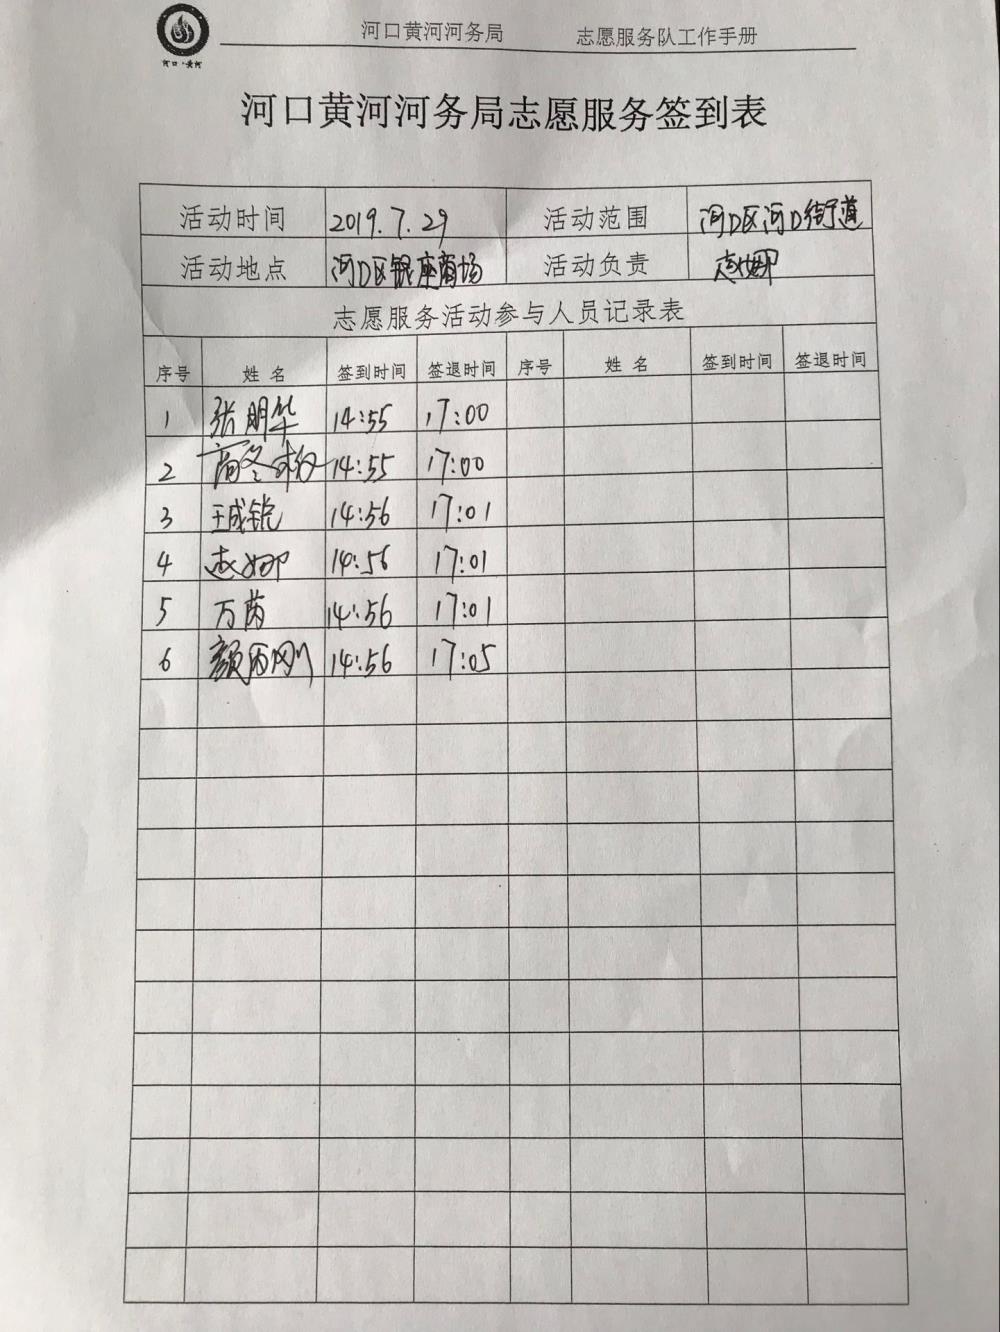 河口黄河河务局 志愿服务队工作手册
河口·黄河
河口黄河河务局志愿服务签到表
活动时间 2019.7.29 活动范围 河口区河口街道
活动地点 河口区银座商场 活动负责 赵娜
志愿服务活动参与人员记录表
序号 姓名 签到时间 签退时间 序号 姓名 签到时间 签退时间
1 张明华 14:55 17:00
2 商冬梅 14:55 17:00
3 王成锐 14:56 17:01
4 赵娜 14:56 17:01
5 万芮 14:56 17:01
6 颜丙刚 14:56 17:05